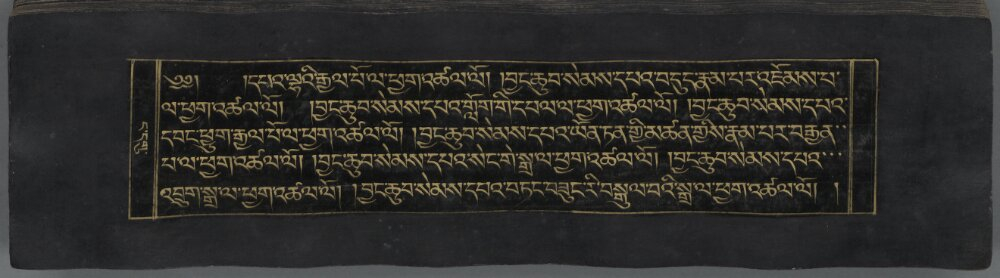 ༄༅། །དཔའ་ལྷའི་རྒྱལ་པོ་ལ་ཕྱག་འཚལ་ལོ། །བྱང་ཆུབ་སེམས་དཔའ་བདུད་རྣམ་པར་འཇོམས་པ་
ལ་ཕྱག་འཚལ་ལོ། །བྱང་ཆུབ་སེམས་དཔའ་གློག་གི་དཔལ་ལ་ཕྱག་འཚལ་ལོ། །བྱང་ཆུབ་སེམས་དཔའ་
དབང་ཕྱུག་རྒྱལ་པོ་ལ་ཕྱག་འཚལ་ལོ། །བྱང་ཆུབ་སེམས་དཔའ་ཡོན་ཏན་གྱི་མཚན་གྱིས་རྣམ་པར་བརྒྱན་
པ་ལ་ཕྱག་འཚལ་ལོ། །བྱང་ཆུབ་སེམས་དཔའ་སེང་གེ་སྒྲ་ལ་ཕྱག་འཚལ་ལོ། །བྱང་ཆུབ་སེམས་དཔའ་
འབྲུག་སྒྲ་ལ་ཕྱག་འཚལ་ལོ། །བྱང་ཆུབ་སེམས་དཔའ་བཏང་བཟུང་རི་བསྒྲལ་བའི་སྒྲ་ལ་ཕྱག་འཚལ་ལོ། །